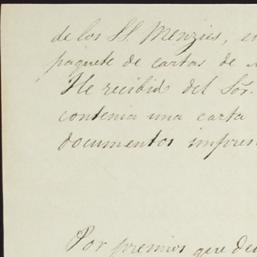 de los SS Menzies, 
paquete de cartas de
He recibido del Sor.
contenia una carta
documentos impres
Por premios que de